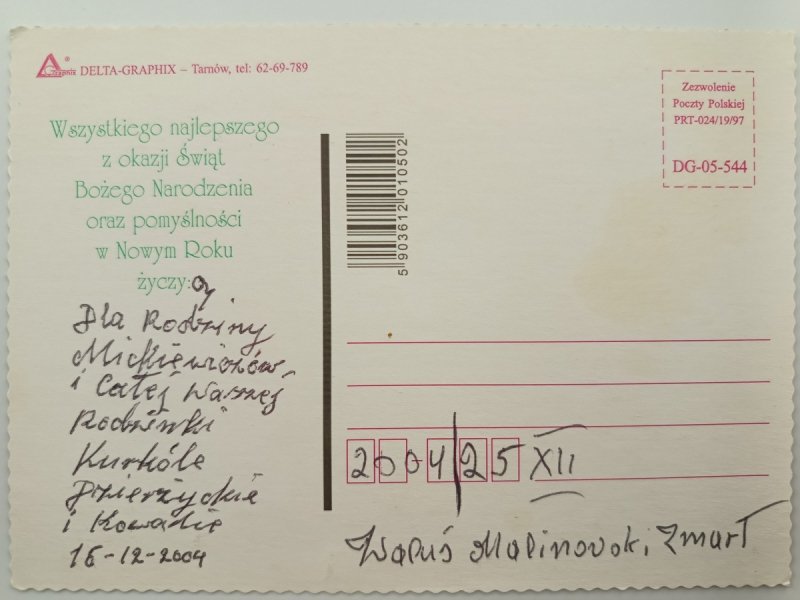 Graphix ® DELTA-GRAPHIX – Tarnów, tel: 62-69-789
Zezwolenie
Poczty Polskiej
PRT-024/19/97
DG-05-544
Wszystkiego najlepszego
z okazji Świąt
Bożego Narodzenia
oraz pomyślności
w Nowym Roku
życzy:my
Dla Rodziny
Mickiewiczów
i Całej Waszej
Rodzinki
Kurkóle
Dzierżyckie
i Kowadie
16-12-2004
5 903612 010502
2004 25 XII
Waluś Malinowski, Zmarł